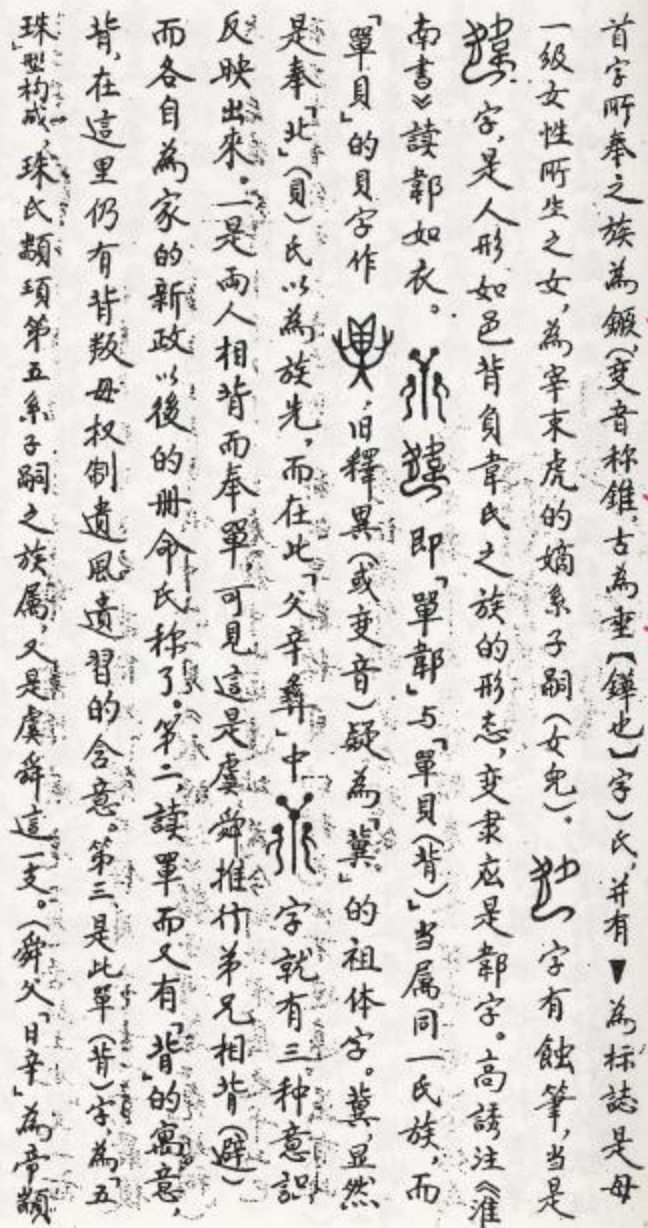 首字所奉之族為鏃(变音称錐,古為垂【鏵也】字)氏,并有▼為标誌是母
一级女性所生之女,為宰束虎的嫡系子嗣(女兒)。 字有蝕筆,当是
字,是人形如邑背負韋氏之族的形态,变隶应是鄣字。高誘注《淮
南書》讀鄣如衣。 即「單鄣」与「單貝(背)」当属同一氏族,而
「單貝」的貝字作 ,旧釋異(或变音)疑為「冀」的祖体字。冀,显然
是奉「北」(貝)氏以為族先,而在此「父辛彝」中 字就有三种意識
反映出來。一是兩人相背而奉單可見這是虞舜推行弟兄相背(避)
而各自為家的新政以後的册命氏称了。第二,讀單而又有「背」的寓意,
背,在這里仍有背叛母权制遺風遺習的含意。第三,是此單(背)字為「五
珠」型构成,珠氏顓頊第五系子嗣之族属,又是虞舜這一支。(舜父「日辛」為帝顓